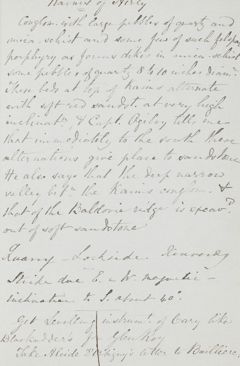 Kaims of Airly
Conglom. with large pebbles of quartz and
mica schist and some few of such felspar
porphyry as forms dikes in mica-schist
some pebbles of quartz 8 to 10 inches diamr.
These beds at top of Kaims alternate
with soft red sandste. at very high
inclinatn. & Capt. Ogilvy tells me
that immediately to the south these
alternations give place to sandstone
He also says that the deep narrow
valley betwn. the Kaims conglom. &
that of the Baldovie ridge is excavd.
out of soft sandstone
Quarry - Lochside
Strike due E. & W. magnetic -
inclination to S. about 40°.
Get Levelling instrumt. of Cary like
Blackadder's for Glen Roy
Take Alcide D'Orbigny's letter to Bailliere